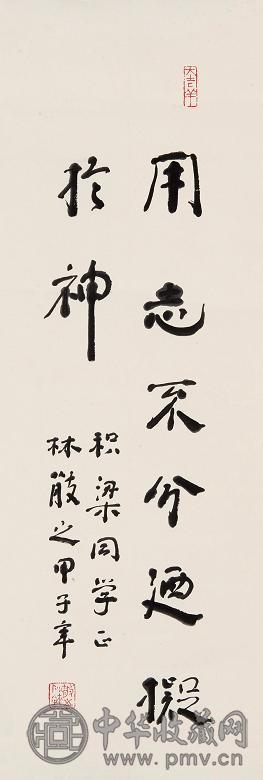 大吉羊
用志不分廼擬
於神
积梁同学正
林散之甲子年
中华收藏网
www.pmv.cn